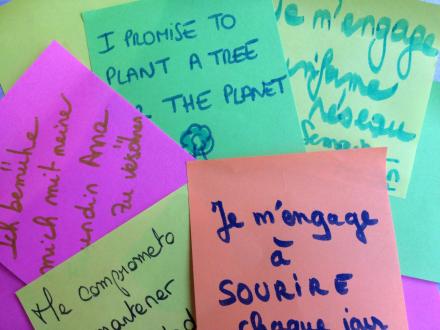 I PROMISE TO
PLANT A TREE
THE PLANET
Je m'engage
réseau
Ich bemühe
mich mit meiner
Anna
zu versöhnen
Me comprometo
mantener
Je m'engage
à
SOURIRE
chaque jour